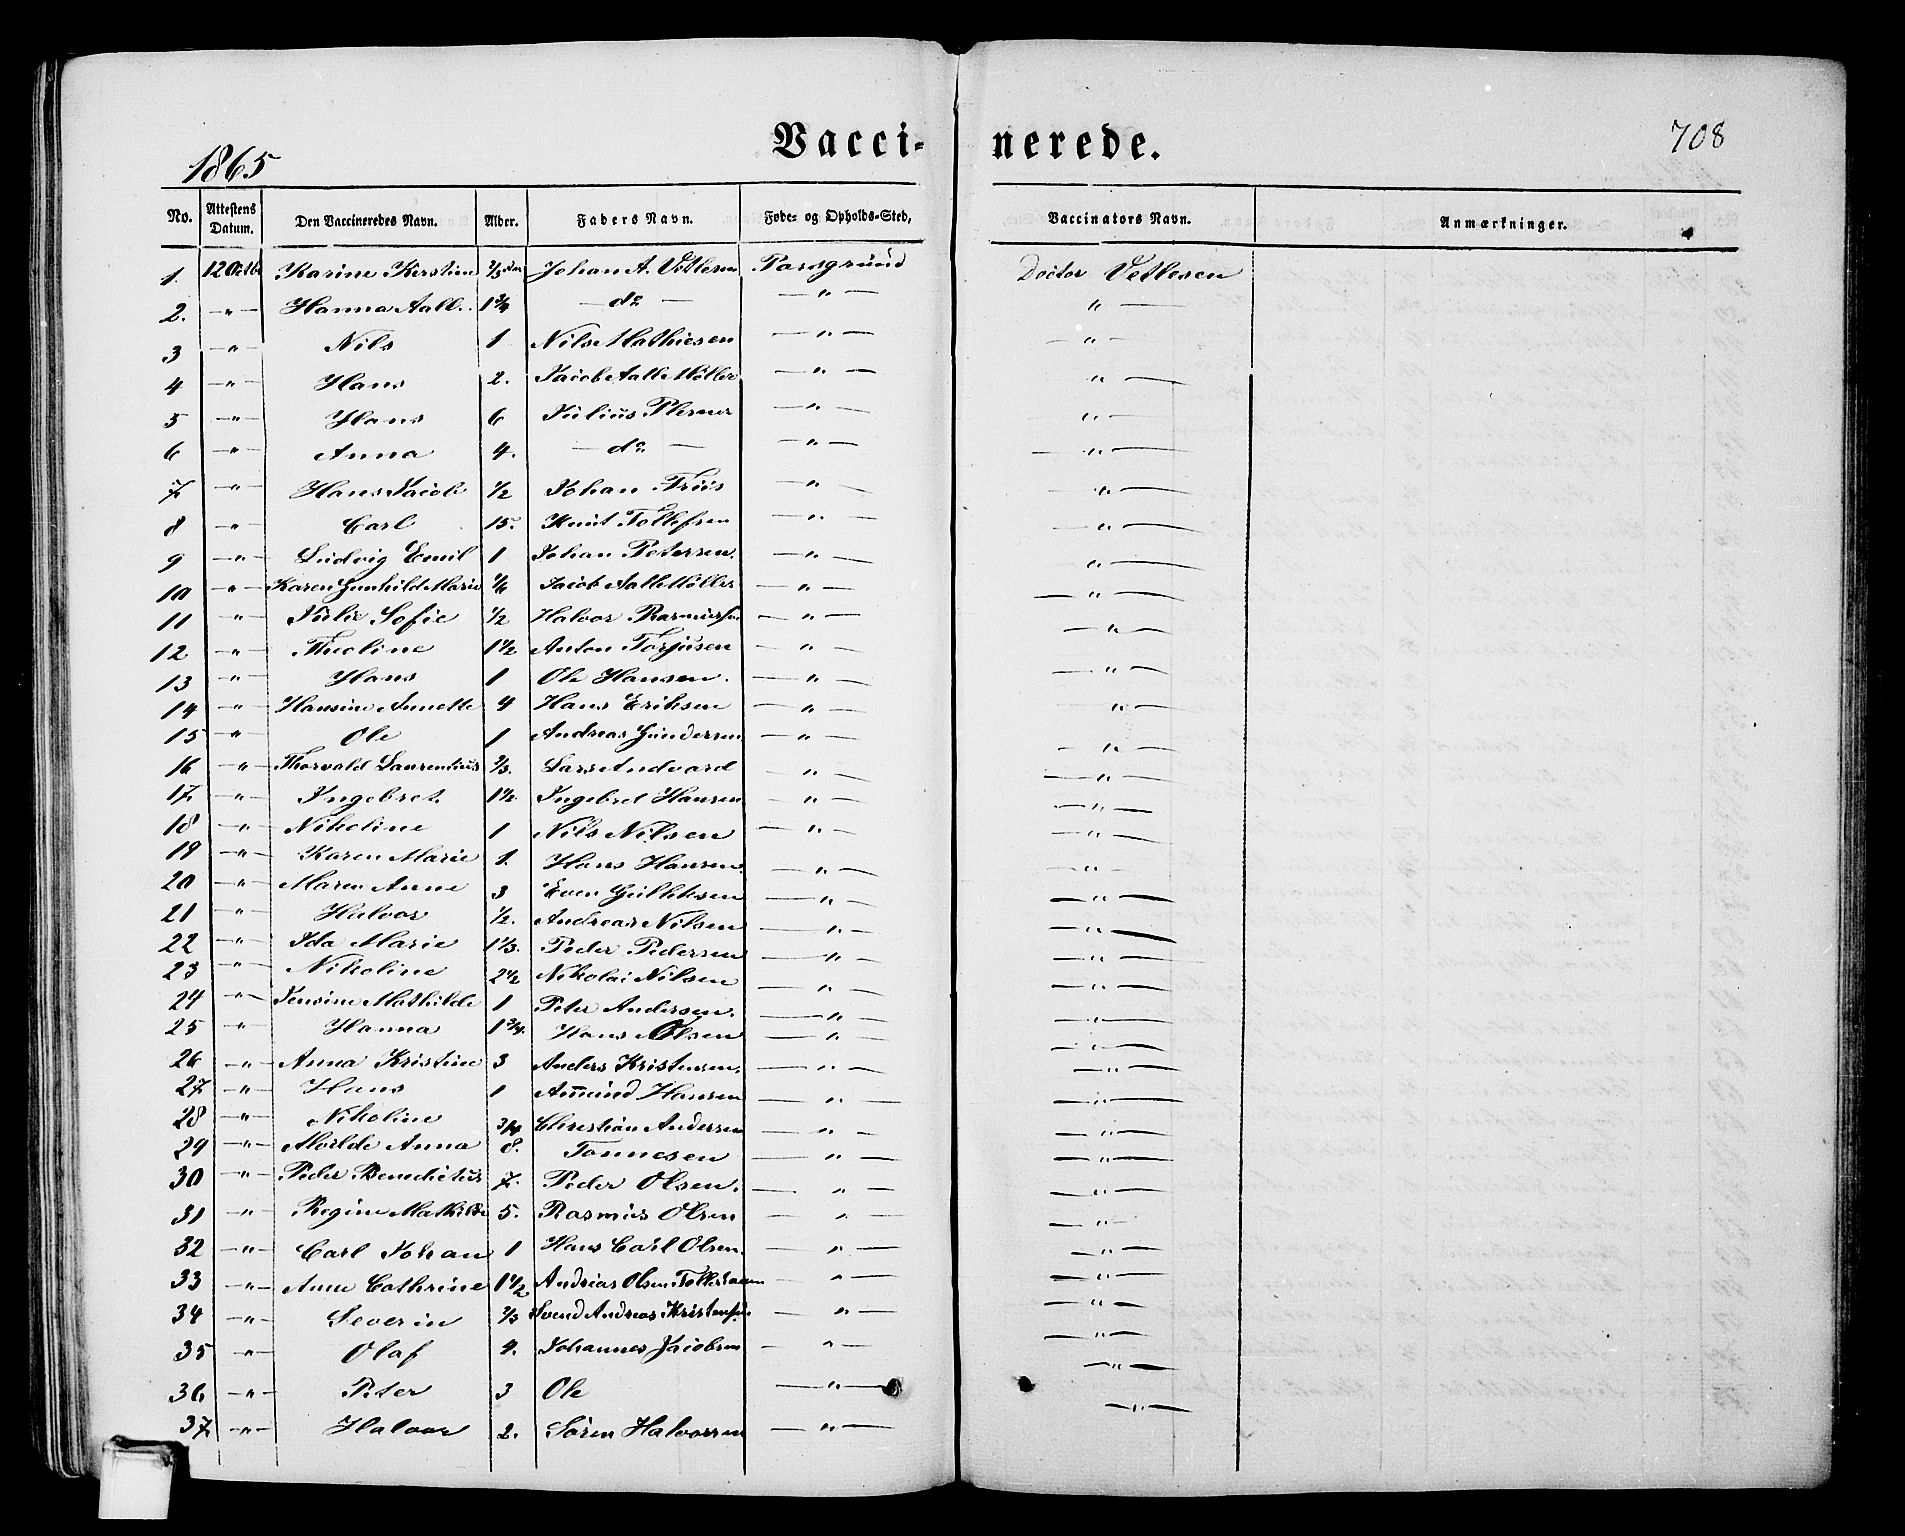 1865
Vacci- nerede.
708
No. Attestens Datum. Den Vaccineredes Navn. Alder. Faders Navn. Føde- og Opholds-Sted, Vaccinators Navn. Anmærkninger.
1. 12 Octb Karine Kirstine Johan A. Vetlesen Porsgrund Doctor Vetlesen
2. — " — Hanna Aall. 1 3/4 — do — — " — " —
3 — " — Nils 1 Nils Mathiesen — " — — " —
4 — " — Hans 2. Jacob Aall Møller — " — " —
5 — " — Hans 6 Julius Plesner — " — — " —
6 — " — Anna 4. — do — — " — — " —
7 — " — Hans Jacob 1/2 Johan Friis — " — — " —
8 — " — Carl 15. Knut Tollefsen — " — — " —
9 — " — Ludvig Emil 1 Johan Petersen. — " — — " —
10 — " — Karen Gunhild Marie 1/6 Jacob Aall Møller — " — — " —
11 — " — Julie Sofie 1/2 Halvor Rasmussen — " — — " —
12 — " — Theoline 1 1/2 Anton Torjusen — " — — " —
13 — " — Hans 1 Ole Hansen. — " — — " —
14 — " — Hansine Annette 4 Hans Eriksen — " — — " —
15 — " — Ole 1 Andreas Gundersen — " — — " —
16 — " — Thorvald Laurentius 2/3. Lars Andvord — " — — " —
17 — " — Ingebret 1 1/2 Ingebret Hansen — " — — " —
18 — " — Nikoline 1 Nils Nilsen — " — — " —
19 — " — Karen Marie 1. Hans Hansen. — " — — " —
20 — " — Maren Anne 3 Even — " — — " —
21 — " — Halvor 1/2. Andreas Nilsen — " — — " —
22 — " — Ida Marie 1 1/3. Peder Pedersen — " — — " —
23 — " — Nikoline 2 1/2 Nikolai Nilsen — " — — " —
24 — " — Jensine Mathilde 1 Peter Andersen. — " — — " —
25 — " — Hanna 1 3/4. Hans Olsen — " — — " —
26 — " — Anna Kristine 3 Anders Kristensen. — " — — " —
27 — " — Hans 1 Amund Hansen — " — — " —
28 — " — Nikoline 3/4 Christian Andersen — " — — " —
29 — " — Anna 8. Tonnesen — " — — " —
30 — " — Peder Benedictus 7. Peder Olsen. — " — — " —
31 — " — Regine Mathilde 5. Rasmus Olsen — " — — " —
32 — " — Carl Johan 1 Hans Carl Olsen. — " — — " —
33 — " — Anne Cathrine 1 1/2 Andreas Olsen — " — — " —
34 — " — Severin 2/3 Svend Andreas Kristensen — " — — " —
35 — " — Olaf 4. Johannes Jacobsen — " — — " —
36 — " — Peter 3 Ole — " — — " —
37 — " — Halvor 2. Søren Halvorsen — " — — " —